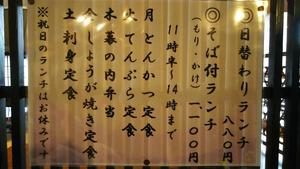 ◎日替わりランチ
八八〇円
◎そば付ランチ
(もり、かけ) 一、一〇〇円
11時半〜14時まで
月 とんかつ定食
火 てんぷら定食
木 幕の内弁当
金 しょうが焼き定食
土 刺身定食
※祝日のランチはお休みです